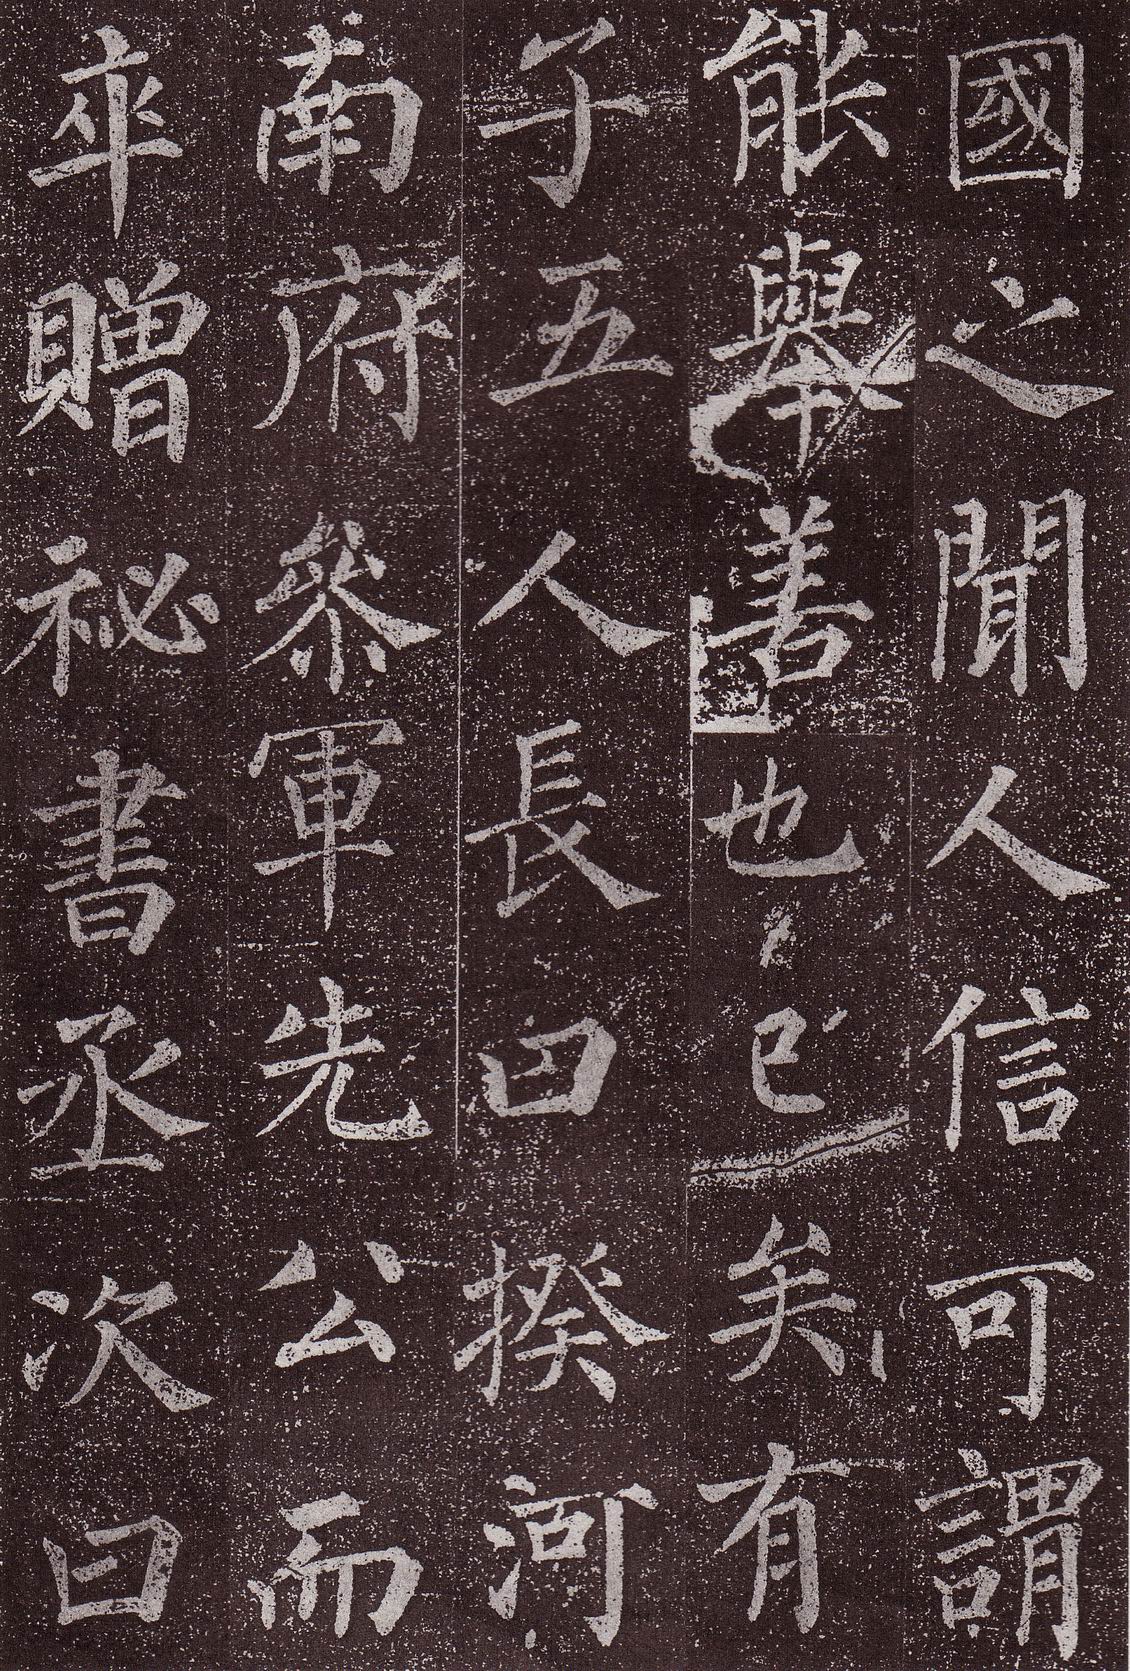 國之聞人信可謂
能舉善也已矣有
子五人長曰揆河
南府參軍先公而
卒贈祕書丞次曰